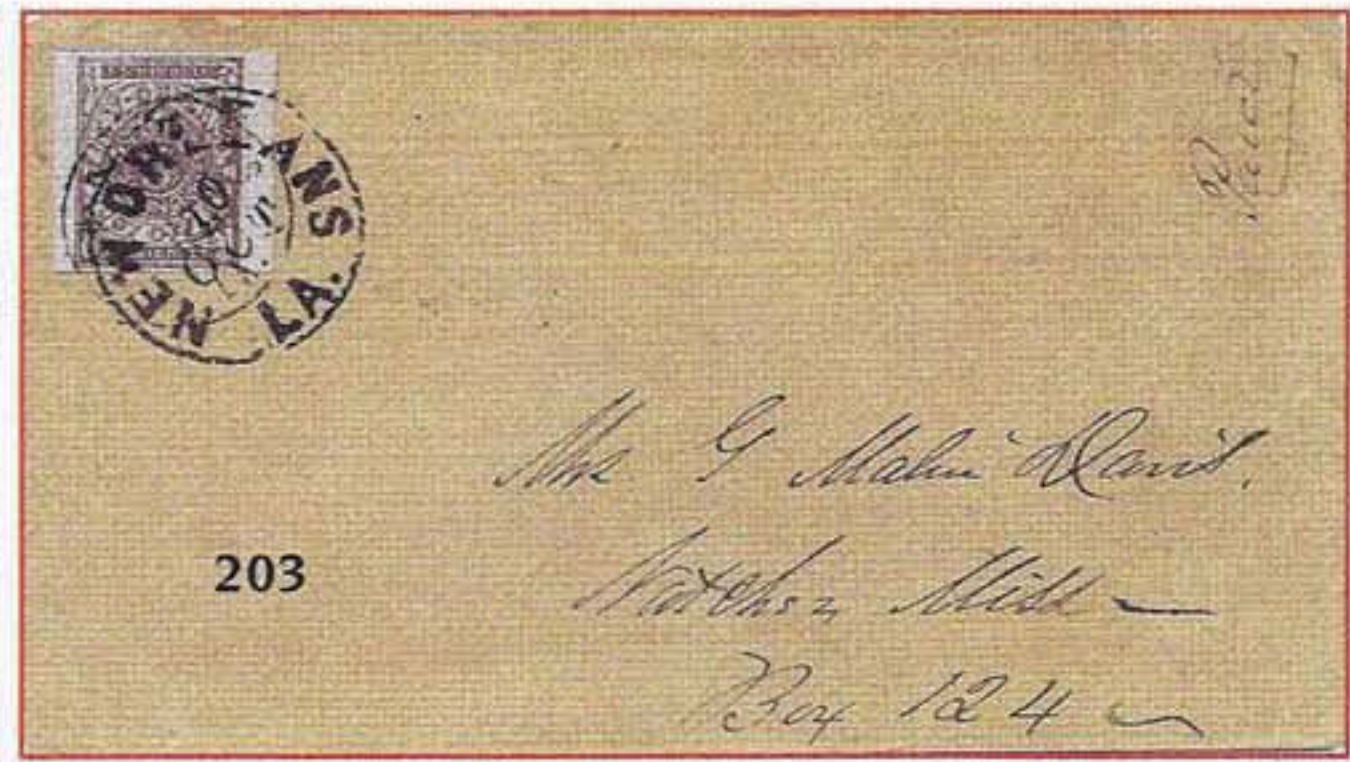 NEW ORLEANS LA.
10
OCT
Mrs G Malin Davis.
Natchez Miss —
Box 124
203